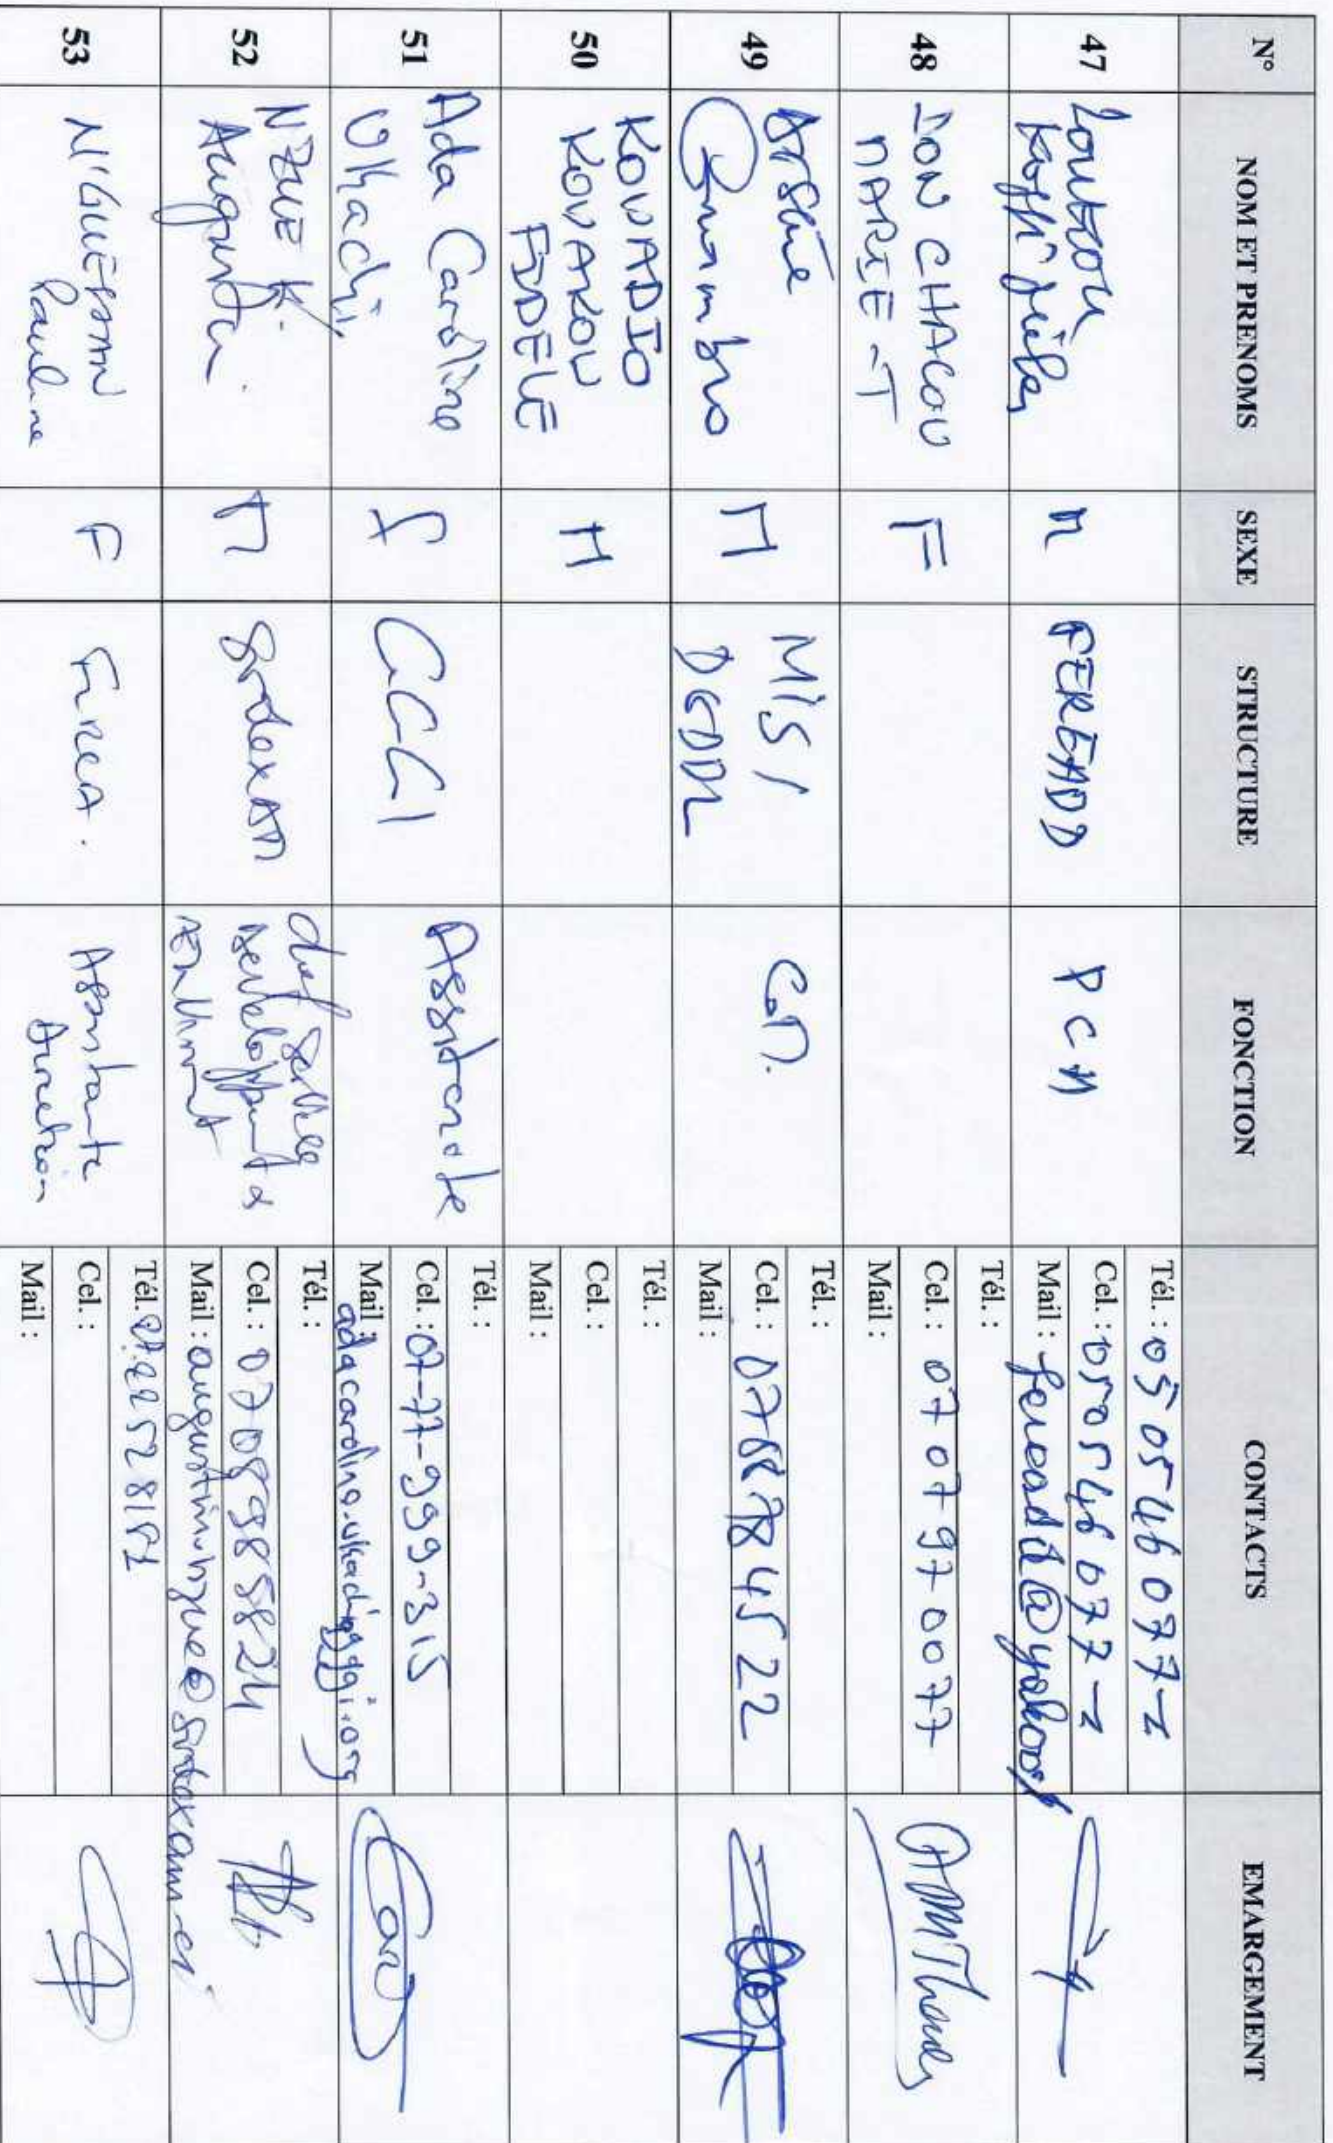 N° NOM ET PRENOMS SEXE STRUCTURE FONCTION CONTACTS EMARGEMENT
47
Koffi
M
FEREADD
PCA
Tél. : 05 05 46 077-1
Cel. : 05 05 46 077-1
Mail : fereadd@yahoo.f
48
ZON CHACOU
MARIE-T
F
Tél. :
Cel. : 07 07 97 00 77
Mail :
49
Arsène
M
MIS/
DGDDL
Tél. :
Cel. : 07 45 22
Mail :
50
KOUADIO
KOUAKOU
FIDELE
M
Tél. :
Cel. :
Mail :
51
Ada Caroline
Ukachi
f
Assistante
Tél. :
Cel. : 07-77-999-315
Mail
52
N'ZUE K.
Augustin
M
SODEXAM
Chef Service
Tél. :
Cel. :
Mail : augustin.nzue@sodexam.ci
53
N'GUESSAN
Pauline
F
FIRCA.
Assistante
Direction
Tél.
Cel. :
Mail :